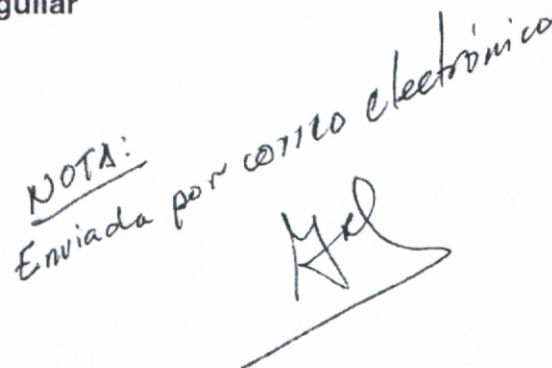 guilar
NOTA:
Enviada por correo electrónico